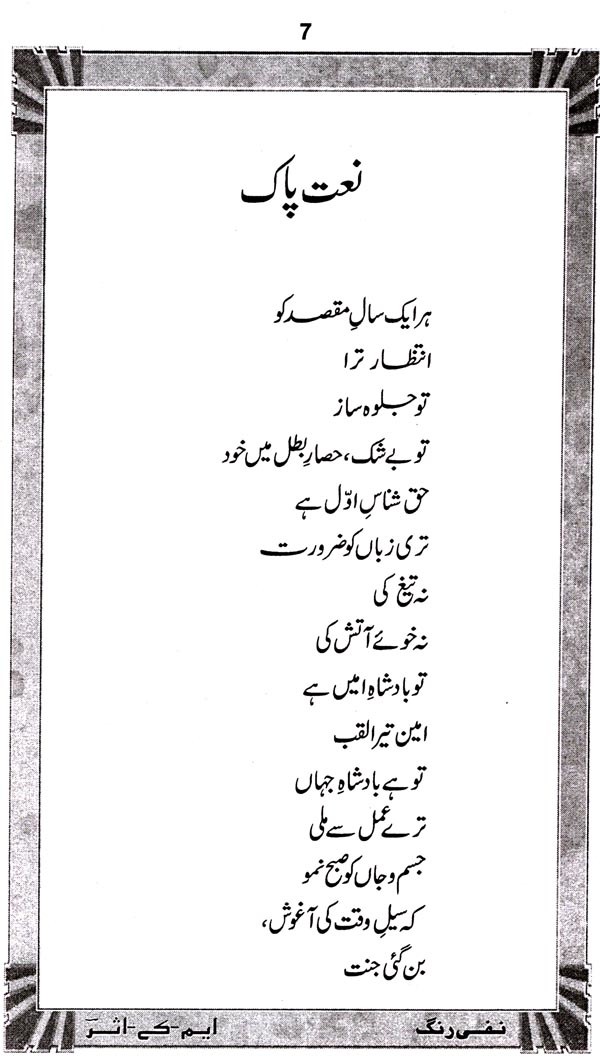 7
نعت پاک
ہر ایک سالِ مقصد کو
انتظار ترا
تو جلوہ ساز
تو بے شک، حصارِ بطل میں خود
حق شناسِ اوّل ہے
تری زباں کو ضرورت
نہ تیغ کی
نہ خوئے آتش کی
تو بادشاہِ امیں ہے
امین تیرا لقب
تو ہے بادشاہِ جہاں
ترے عمل سے ملی
جسم و جاں کو صبح نمو
کہ سیلِ وقت کی آغوش،
بن گئی جنت
نفی رنگ ایم-کے-اثرؔ